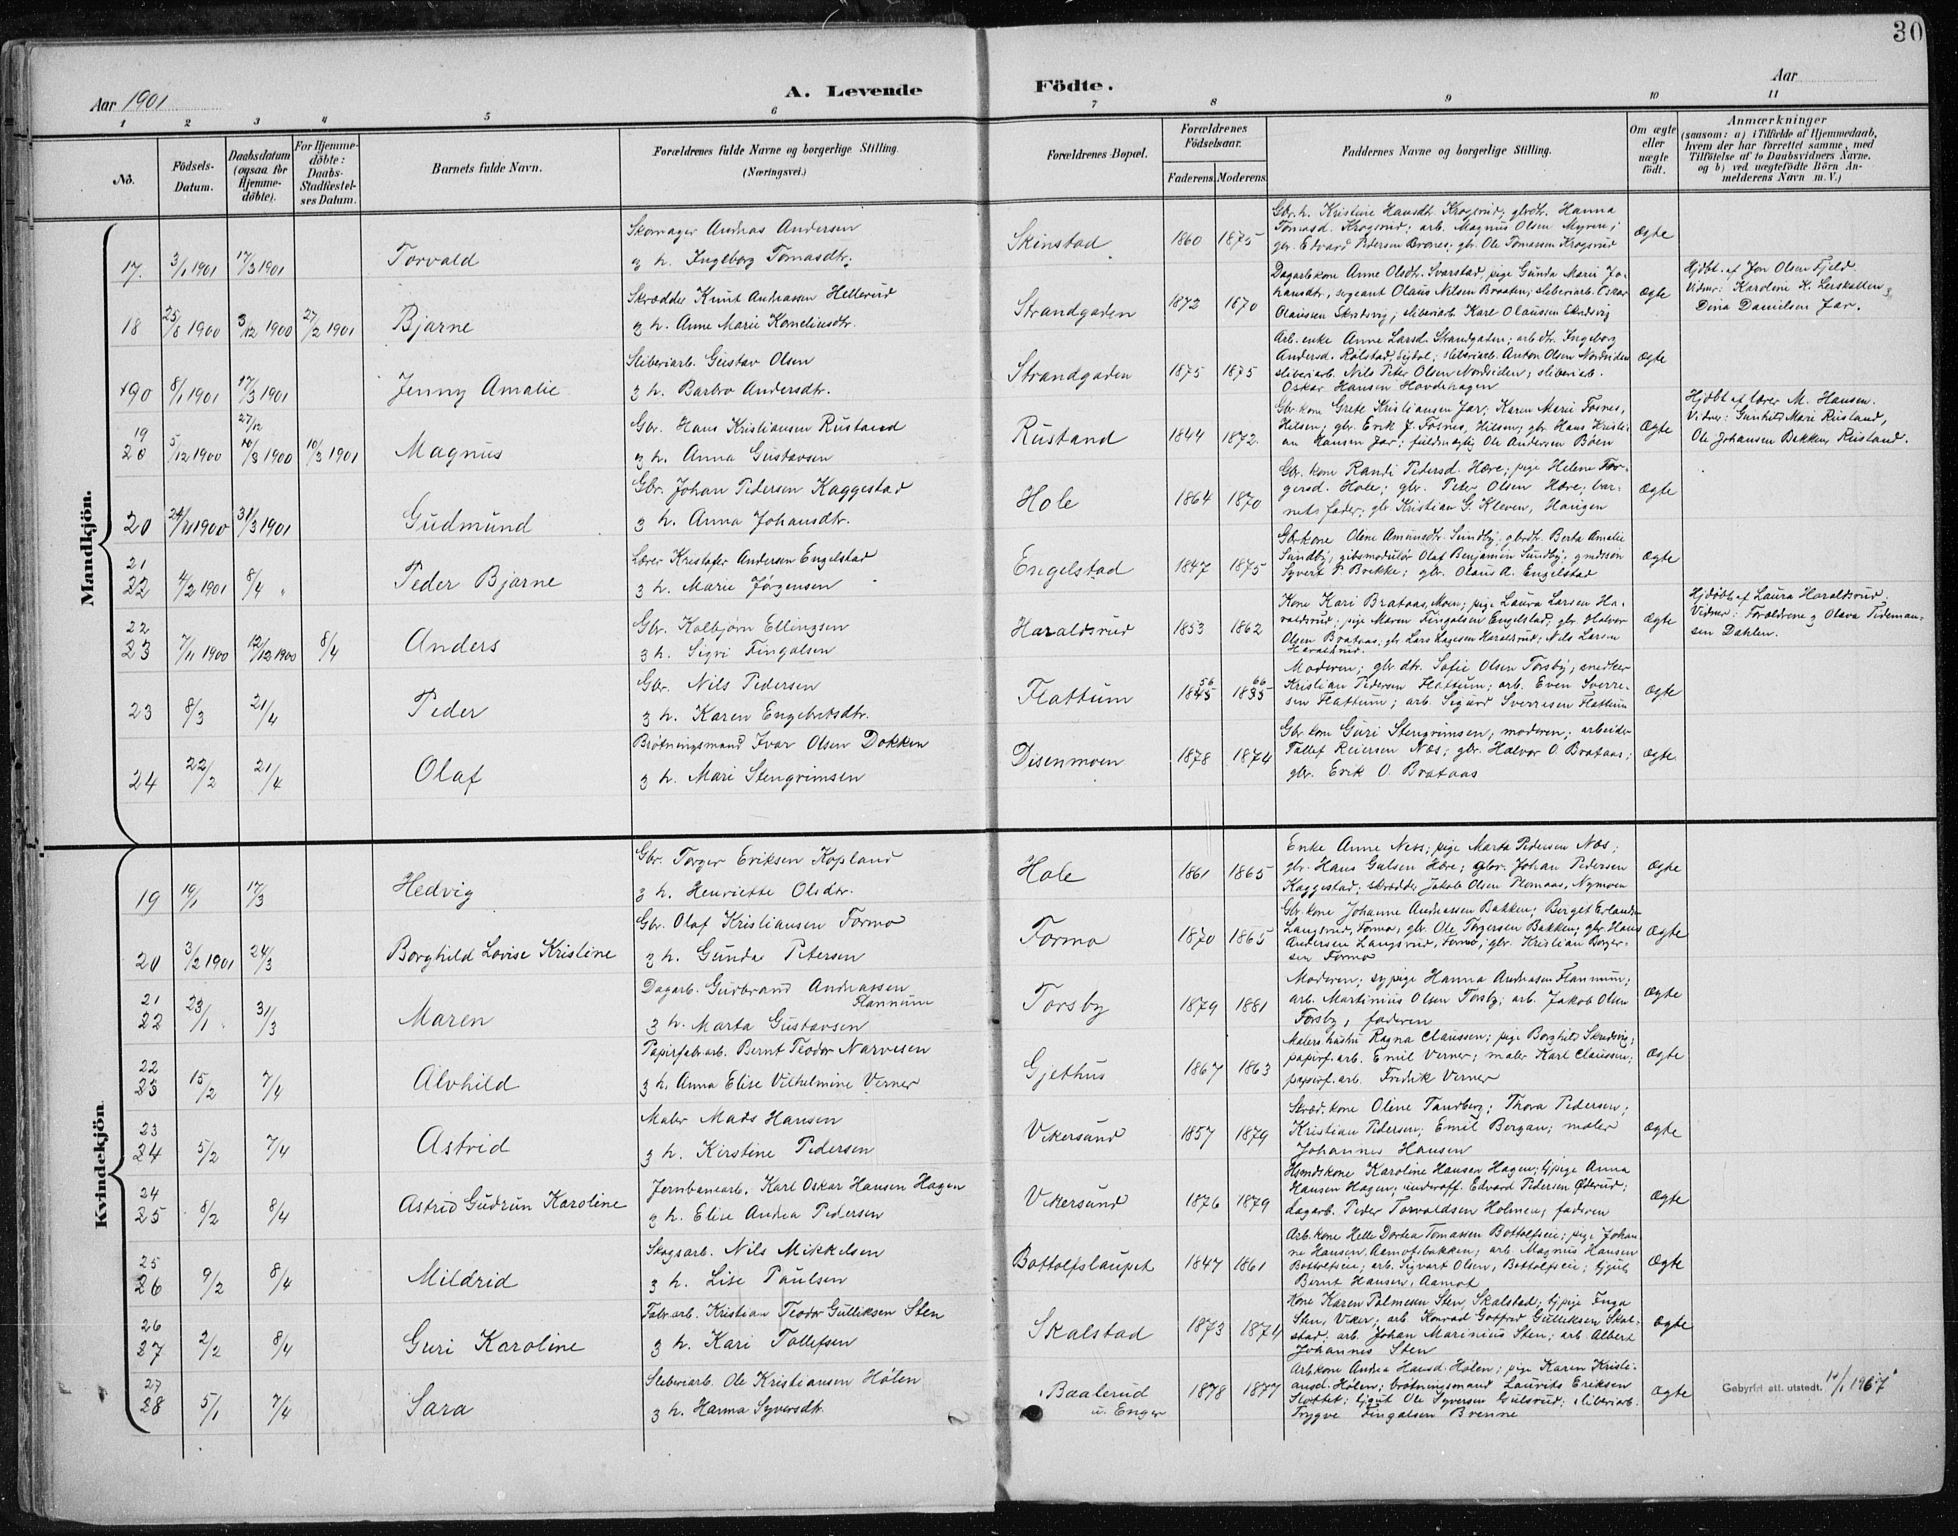 30
Aar 1901
A. Levende Födte.
Aar
1 2 3 4 5 6 7 8 9 10 11
No.
Födsels-Datum.
Daabsdatum (ogsaa for Hjemmedöbte).
For Hjemmedöbte: Daabs-Stadfæstelses Datum.
Barnets fulde Navn.
Forældrenes fulde Navne og borgerlige Stilling. (Næringsvei.)
Forældrenes Bopæl.
Forældrenes Födselsaar.
Faderens. Moderens.
Faddernes Navne og borgerlige Stilling.
Om ægte eller uægte födt.
Anmærkninger
(saasom: a) i Tilfælde af Hjemmedaab, hvem der har forrettet samme, med Tilföielse af to Daabsvidners Navne. og b) ved uægtefödte Börn Anmelderens Navn m. V.)
Mandkjön.
17. 3/1 1901 17/3 1901 Torvald
Skomager Andreas Andersen
& h. Ingeborg Tomasdtr.
Skinstad 1860 1875
Gbr. h. Kristine Hansdtr Krogsrud; gbrdtr. Hanna
Tomasd. Krogsrud; arb. Magnus Olsen Myren;
gbr. Edvard Pedersen Brones; gbr. Ole Tomassen Krogsrud
Ægte
18 25/8 1900 3/12 1900 27/2 1901 Bjarne
Skrædder Knut Andreassen Hellerud
& h. Anne Marie Korneliusdtr.
Strandgaden 1872 1870
Dagarb.kone Anne Olsdtr. Svarstad, pige Gunda Marie Jo-
hansdtr, sergeant Olaus Nilsen Braaten; sliberiarb. Oskar
Olaussen Skredsvig; sliberiarb Karl Olaussen Skredsvig
Ægte
Hjdbt. af Jon Olsen Fjeld.
Vidner: Karoline K. Lerskallen &
Dina Danielsen Jar.
190 8/1 1901 17/3 1901 Jenny Amalie
Sliberiarb. Gustav Olsen
& h. Barbro Andersdtr.
Strandgaden 1875 1875
Arb. enke Anne Larsd. Strandgaten; arb.dtr. Ingeborg
Andersd. Rolstad, Sigdal; sliberiarb. Anton Olsen Nordsiden
sliberiarb. Nils Peter Olsen Nordsiden; sliberiarb.
Oskar Hansen Hovdehagen
Ægte
19
20 5/12 1900 27/12 10/3 1900 10/3 1901 Magnus
Gbr. Hans Kristiansen Rustand
& h. Anna Gustavsen
Rustand 1844 1872.
Gbr kone Grete Kristiansen Jar; Karen Marie Fosnes,
Hilsen; gbr. Erik J. Fosnes, Hilsen; gbr. Hans Kristi-
an Hansen Jar; fuldmægtig Ole Andersen Böen
Ægte
Hjdbt af lærer M. Hansen.
Vidner: Gunhild Marie Rustand,
Ole Johansen Bakken, Rustand.
20 24/11 1900 31/3 1901 Gudmund
Gbr. Johan Pedersen Kaggestad
& h. Anna Johansdtr.
Hole 1864 1870
Gbr. kone Randi Pedersd. Hære; pige Helene Tor-
gersd. Hole; gbr. Peter Olsen Hære; bar-
nets fader; gbr Kristian G. Kleven, Haugen
Ægte
21
22 4/2 1901 8/4 " Peder Bjarne
Lærer Kristofer Andersen Engelstad
& h. Marie Jørgensen
Engelstad 1847 1875
Gbr kone Olene Amundsdtr. Sundby; gbrdtr. Berta Amalie
Sundby; gibsmodulør Olaf Benjamin Sundby; grdsson
Syvert P. Brekke; gbr. Olaus A. Engelstad
Ægte
22
23 7/11 1900 12/12 1900 8/4 Anders
Gbr. Kolbjørn Ellingsen
& h. Sigri Fingalsen
Haraldsrud 1853 1862
Kone Kari Brataas, Moen; pige Laura Larsen Ha-
raldsrud; pige Maren Fingalsen Engelstad, gbr. Halvor
Olsen Brataas, gbr Lars Lagesen Haraldsrud; Nils Larsen
Haraldsrud.
Ægte
Hjdøbt af Laura Haraldsrud.
Vidner: Forældrene & Olava Tideman-
sen Dahlen.
23 8/3 21/4 Peder
Gbr. Nils Pedersen
& h. Karen Engebretsdtr.
Flattum 1845 56 1835 66
Moderen; gbr dtr. Sofie Olsen Torsby; snedker
Kristian Pedersen Flattum; arb. Even Sverre-
sen Flattum; arb. Sigurd Sverresen Flattum
Ægte
24 22/2 21/4 Olaf
Brøtningsmand Ivar Olsen Dokken
& h. Mari Stengrimsen
Disenmoen 1878 1874
Gbr kone Guri Stengrimsen; moderen; arbeider
Tollef Reiersen Næs; gbr. Halvor O. Brataas;
gbr. Erik O. Brataas
Ægte.
Kvindekjön.
19 19/1 17/3 Hedvig
Gbr. Torger Eriksen Kopland
& h. Henriette Olsdtr.
Hole 1861 1865
Enke Anne Ness; pige Marta Pedersen Næs;
gbr. Hans Gulsen Hære; gbr. Johan Pedersen
Kaggestad; skrædder Jakob Olsen Plomaas, Nymoen
Ægte
20 3/2 1901 24/3 Borghild Lovise Kristine
Gbr. Olaf Kristiansen Formo
& h. Gunda Petersen
Formo 1870 1865
Gbr. kone Johanne Andreassen Bakken; Berget Erlands
Langsrud, Formo; gbr. Ole Torgersen Bakken; gbr. Hans
Andersen Langsrud, Formo; gbr. Kristian Borger-
sen Formo
Ægte
21
22 23/1 31/3 Maren
Dagarb. Gudbrand Andreassen
Flannum
& h. Marta Gustavsen
Torsby 1879 1881
Moderen; sypige Hanna Andreasen Flannum;
arb. Martinius Olsen Torsby; arb. Jakob Olsen
Torsby; faderen
Ægte
22
23 15/2 7/4 Alvhild
Papirfabr.arb. Bernt Teodor Narvesen
& h. Anna Elise Vilhelmine Verner
Gjethus 1867 1863
Malers hustru Ragna Claussen; pige Borghild Skredsvig;
papirf. arb. Emil Verner; maler Karl Claussen;
papirf. arb. Fredrik Verner
Ægte
23
24 5/2 7/4 Astrid
Maler Mads Hansen
& h. Kirstine Pedersen
Vikersund 1857 1879
Skræd. kone Oline Tandberg; Thora Pedersen;
Kristian Pedersen; Emil Bergan; maler
Johannes Hansen
Ægte
24
25 8/2 8/4 Astrid Gudrun Karoline
Jernbanearb. Karl Oskar Hansen Hagen
& h. Elise Andrea Pedersen
Vikersund 1876 1879
Hsmdskone Karoline Hansen Hagen; tjpige Anna
Hansen Hagen; underoff. Edvard Pedersen Øderud;
dagarb. Peder Torvaldsen Holmen; faderen
Ægte
25
26 9/2 8/4 Mildrid
Skogsarb. Nils Mikkelsen
& h. Lise Paulsen
Bottolfslaupet 1847 1861
Arb. kone Helle Dortea Tomassen Bottolfseie; pige Johan
ne Hansen Aamotbakken; arb. Magnus Hansen
Bottolfseie; arb. Sigvart Olsen, Bottolfseie; tjgut
Bernt Hansen, Aamot
Ægte
26
27 2/2 8/4 Guri Karoline
Fabr.arb. Kristian Teodor Gulliksen Sten
& h. Kari Tollefsen
Skalstad 1873 1874
Kone Karen Palmesen Sten, Skalstad; tjpige Inga
Sten, Viker; arb Konrad Gotfred Gulliksen Skal-
stad; arb. Johan Marinius Sten; arb Albert
Johannes Sten
Ægte
27
28 5/1 7/4 Sara
Sliberiarb. Ole Kristiansen Hølen
& h. Hanna Syversdtr.
Baalerud
u. Enger
1878 1877
Arbkone Andrea Hansd. Hølen; pige Karen Kristi-
ansd. Hølen; brøtningsmand Laurits Eriksen
Slottet; tjgut Ole Syversen Gulsrud; sliberiarb.
Trygve Fingalsen Brenne
Ægte
Gebyrfri att. utstedt. 14/1 1967